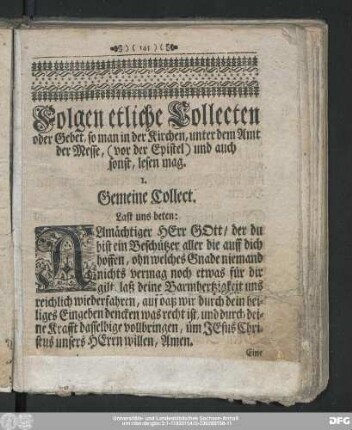 ( 141 )
Folgen etliche Collecten
oder Gebet, so man in der Kirchen, unter dem Amt
der Messe, (vor der Epistel) und auch
sonst, lesen mag.
1.
Gemeine Collect.
Last uns beten:
Allmächtiger HErr GOtt/ der du
bist ein Beschützer aller die auff dich
hoffen, ohn welches Gnade niemand
nichts vermag noch etwas für dir
gilt, laß deine Barmhertzigkeit uns
reichlich wiederfahren, auf daß wir durch dein hei-
liges Eingeben dencken was recht ist, und durch dei-
ne Krafft dasselbige vollbringen, üm JEsus Chri-
stus unsers HErrn willen, Amen.
Eine
Universitäts- und Landesbibliothek Sachsen-Anhalt